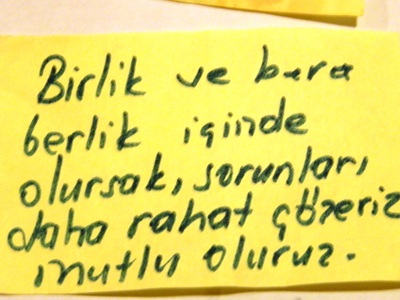 Birlik ve bera
berlik içinde
olursak, sorunları
daha rahat çözeriz
mutlu oluruz.